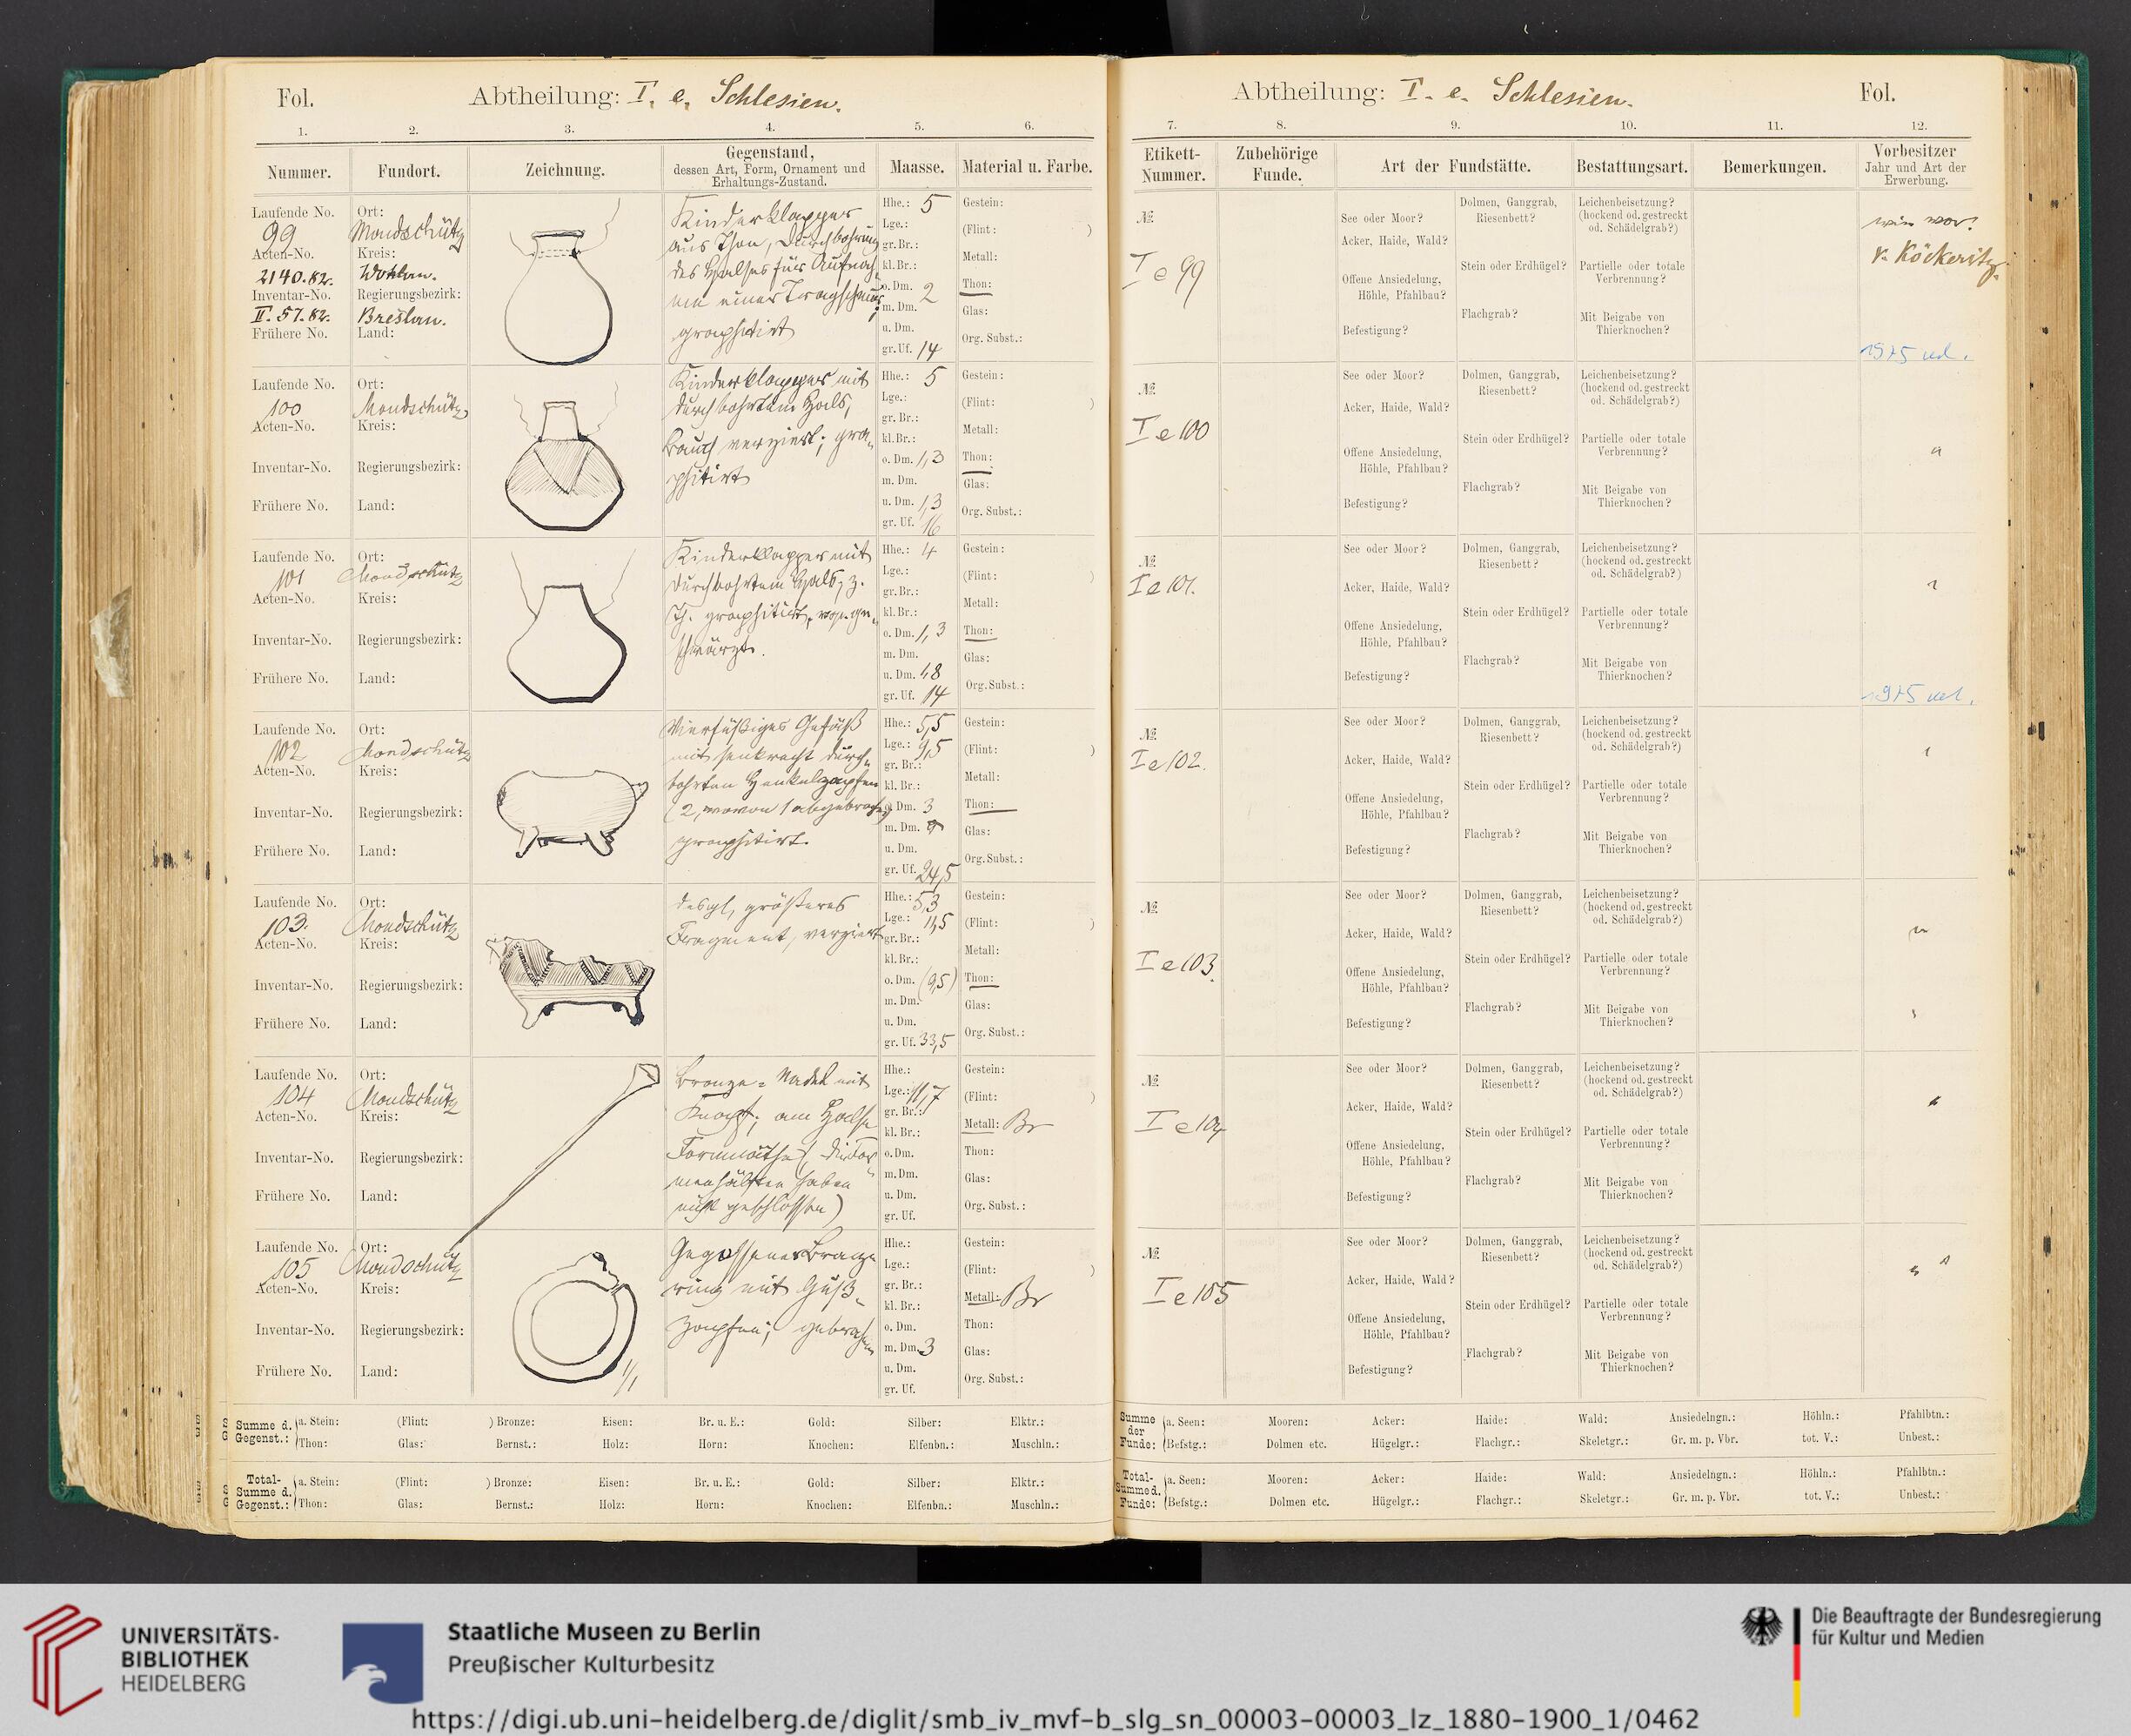 Fol. Abtheilung: I. e. Schlesien.
1. 2. 3. 4. 5. 6.
Nummer. Fundort. Zeichnung. Gegenstand, dessen Art, Form, Ornament und Erhaltungs-Zustand. Maasse. Material u. Farbe.
Laufende No. 99
Acten-No. 2140.82.
Inventar-No. II. 57.82.
Frühere No.
Ort: Mondschütz
Kreis: Wohlau.
Regierungsbezirk: Breslau.
Land:
Kinderklapper
aus Thon, Durchbohrung
des Halses für Aufnah-
me einer Tragschnur;
graphitirt
Hhe.: 5
Lge.:
gr. Br.:
kl. Br.:
o. Dm. 2
m. Dm.
u. Dm.
gr. Uf. 14
Gestein:
(Flint: )
Metall:
Thon:
Glas:
Org. Subst.:
Laufende No. 100
Acten-No.
Inventar-No.
Frühere No.
Ort: Mondschütz
Kreis:
Regierungsbezirk:
Land:
Kinderklapper mit
durchbohrtem Hals,
Bauch verziert; gra-
phitirt
Hhe.: 5
Lge.:
gr. Br.:
kl. Br.:
o. Dm. 1,3
m. Dm.
u. Dm. 1,3
gr. Uf. 16
Gestein:
(Flint: )
Metall:
Thon:
Glas:
Org. Subst.:
Laufende No. 101
Acten-No.
Inventar-No.
Frühere No.
Ort: Mondschütz
Kreis:
Regierungsbezirk:
Land:
Kinderklapper mit
durchbohrtem Hals, z.
Th. graphitirt, ge-
schwärzt.
Hhe.: 4
Lge.:
gr. Br.:
kl. Br.:
o. Dm. 1,3
m. Dm.
u. Dm. 1,8
gr. Uf. 14
Gestein:
(Flint: )
Metall:
Thon:
Glas:
Org. Subst.:
Laufende No. 102
Acten-No.
Inventar-No.
Frühere No.
Ort: Mondschütz
Kreis:
Regierungsbezirk:
Land:
Vierfüßiges Gefäß
mit senkrecht durch-
bohrten Henkelzapfen
(2, wovon 1 abgebrochen)
graphitirt.
Hhe.: 5,5
Lge.: 9,5
gr. Br.:
kl. Br.:
o. Dm. 3
m. Dm.
u. Dm.
gr. Uf. 24,5
Gestein:
(Flint: )
Metall:
Thon:
Glas:
Org. Subst.:
Laufende No. 103.
Acten-No.
Inventar-No.
Frühere No.
Ort: Mondschütz
Kreis:
Regierungsbezirk:
Land:
desgl, größeres
Fragment, verziert
Hhe.: 5,3
Lge.: 11,5
gr. Br.:
kl. Br.:
o. Dm. (9,5)
m. Dm.
u. Dm.
gr. Uf. 33,5
Gestein:
(Flint: )
Metall:
Thon:
Glas:
Org. Subst.:
Laufende No. 104
Acten-No.
Inventar-No.
Frühere No.
Ort: Mondschütz
Kreis:
Regierungsbezirk:
Land:
Bronze-Nadel mit
Knopf; am Halse
Formnäthe (die For-
menhälften haben
nicht geschlossen)
Hhe.:
Lge.: 11,7
gr. Br.:
kl. Br.:
o. Dm.
m. Dm.
u. Dm.
gr. Uf.
Gestein:
(Flint: )
Metall: Br
Thon:
Glas:
Org. Subst.:
Laufende No. 105
Acten-No.
Inventar-No.
Frühere No.
Ort: Mondschütz
Kreis:
Regierungsbezirk:
Land:
1/1
Gegossener Bronze
ring mit Guß-
zapfen; gebrochen
Hhe.:
Lge.:
gr. Br.:
kl. Br.:
o. Dm.
m. Dm. 3
u. Dm.
gr. Uf.
Gestein:
(Flint: )
Metall: Br
Thon:
Glas:
Org. Subst.:
Summe d. Gegenst.: a. Stein: (Flint: ) Bronze: Eisen: Br. u. E.: Gold: Silber: Elktr.:
Thon: Glas: Bernst.: Holz: Horn: Knochen: Elfenbn.: Muschln.:
Total-Summe d. Gegenst.: a. Stein: (Flint: ) Bronze: Eisen: Br. u. E.: Gold: Silber: Elktr.:
Thon: Glas: Bernst.: Holz: Horn: Knochen: Elfenbn.: Muschln.:
Abtheilung: I. e. Schlesien. Fol.
7. 8. 9. 10. 11. 12.
Etikett-Nummer. Zubehörige Funde. Art der Fundstätte. Bestattungsart. Bemerkungen. Vorbesitzer Jahr und Art der Erwerbung.
№ I e 99
See oder Moor?
Acker, Haide, Wald?
Offene Ansiedelung, Höhle, Pfahlbau?
Befestigung?
Dolmen, Ganggrab, Riesenbett?
Stein oder Erdhügel?
Flachgrab?
Leichenbeisetzung? (hockend od. gestreckt od. Schädelgrab?)
Partielle oder totale Verbrennung?
Mit Beigabe von Thierknochen?
wie vor.
v. Köckeritz.
№ I e 100
See oder Moor?
Acker, Haide, Wald?
Offene Ansiedelung, Höhle, Pfahlbau?
Befestigung?
Dolmen, Ganggrab, Riesenbett?
Stein oder Erdhügel?
Flachgrab?
Leichenbeisetzung? (hockend od. gestreckt od. Schädelgrab?)
Partielle oder totale Verbrennung?
Mit Beigabe von Thierknochen?
№ I e 101.
See oder Moor?
Acker, Haide, Wald?
Offene Ansiedelung, Höhle, Pfahlbau?
Befestigung?
Dolmen, Ganggrab, Riesenbett?
Stein oder Erdhügel?
Flachgrab?
Leichenbeisetzung? (hockend od. gestreckt od. Schädelgrab?)
Partielle oder totale Verbrennung?
Mit Beigabe von Thierknochen?
№ I e 102.
See oder Moor?
Acker, Haide, Wald?
Offene Ansiedelung, Höhle, Pfahlbau?
Befestigung?
Dolmen, Ganggrab, Riesenbett?
Stein oder Erdhügel?
Flachgrab?
Leichenbeisetzung? (hockend od. gestreckt od. Schädelgrab?)
Partielle oder totale Verbrennung?
Mit Beigabe von Thierknochen?
№ I e 103.
See oder Moor?
Acker, Haide, Wald?
Offene Ansiedelung, Höhle, Pfahlbau?
Befestigung?
Dolmen, Ganggrab, Riesenbett?
Stein oder Erdhügel?
Flachgrab?
Leichenbeisetzung? (hockend od. gestreckt od. Schädelgrab?)
Partielle oder totale Verbrennung?
Mit Beigabe von Thierknochen?
№ I e 104
See oder Moor?
Acker, Haide, Wald?
Offene Ansiedelung, Höhle, Pfahlbau?
Befestigung?
Dolmen, Ganggrab, Riesenbett?
Stein oder Erdhügel?
Flachgrab?
Leichenbeisetzung? (hockend od. gestreckt od. Schädelgrab?)
Partielle oder totale Verbrennung?
Mit Beigabe von Thierknochen?
№ I e 105
See oder Moor?
Acker, Haide, Wald?
Offene Ansiedelung, Höhle, Pfahlbau?
Befestigung?
Dolmen, Ganggrab, Riesenbett?
Stein oder Erdhügel?
Flachgrab?
Leichenbeisetzung? (hockend od. gestreckt od. Schädelgrab?)
Partielle oder totale Verbrennung?
Mit Beigabe von Thierknochen?
Summe der Funde: a. Seen: Mooren: Acker: Haide: Wald: Ansiedelngn.: Höhln.: Pfahlbtn.:
Befstg.: Dolmen etc. Hügelgr.: Flachgr.: Skeletgr.: Gr. m. p. Vbr. tot. V.: Unbest.:
Total-Summe d. Funde: a. Seen: Mooren: Acker: Haide: Wald: Ansiedelngn.: Höhln.: Pfahlbtn.:
Befstg.: Dolmen etc. Hügelgr.: Flachgr.: Skeletgr.: Gr. m. p. Vbr. tot. V.: Unbest.:
UNIVERSITÄTS-
BIBLIOTHEK
HEIDELBERG
Staatliche Museen zu Berlin
Preußischer Kulturbesitz
Die Beauftragte der Bundesregierung
für Kultur und Medien
https://digi.ub.uni-heidelberg.de/diglit/smb_iv_mvf-b_slg_sn_00003-00003_lz_1880-1900_1/0462